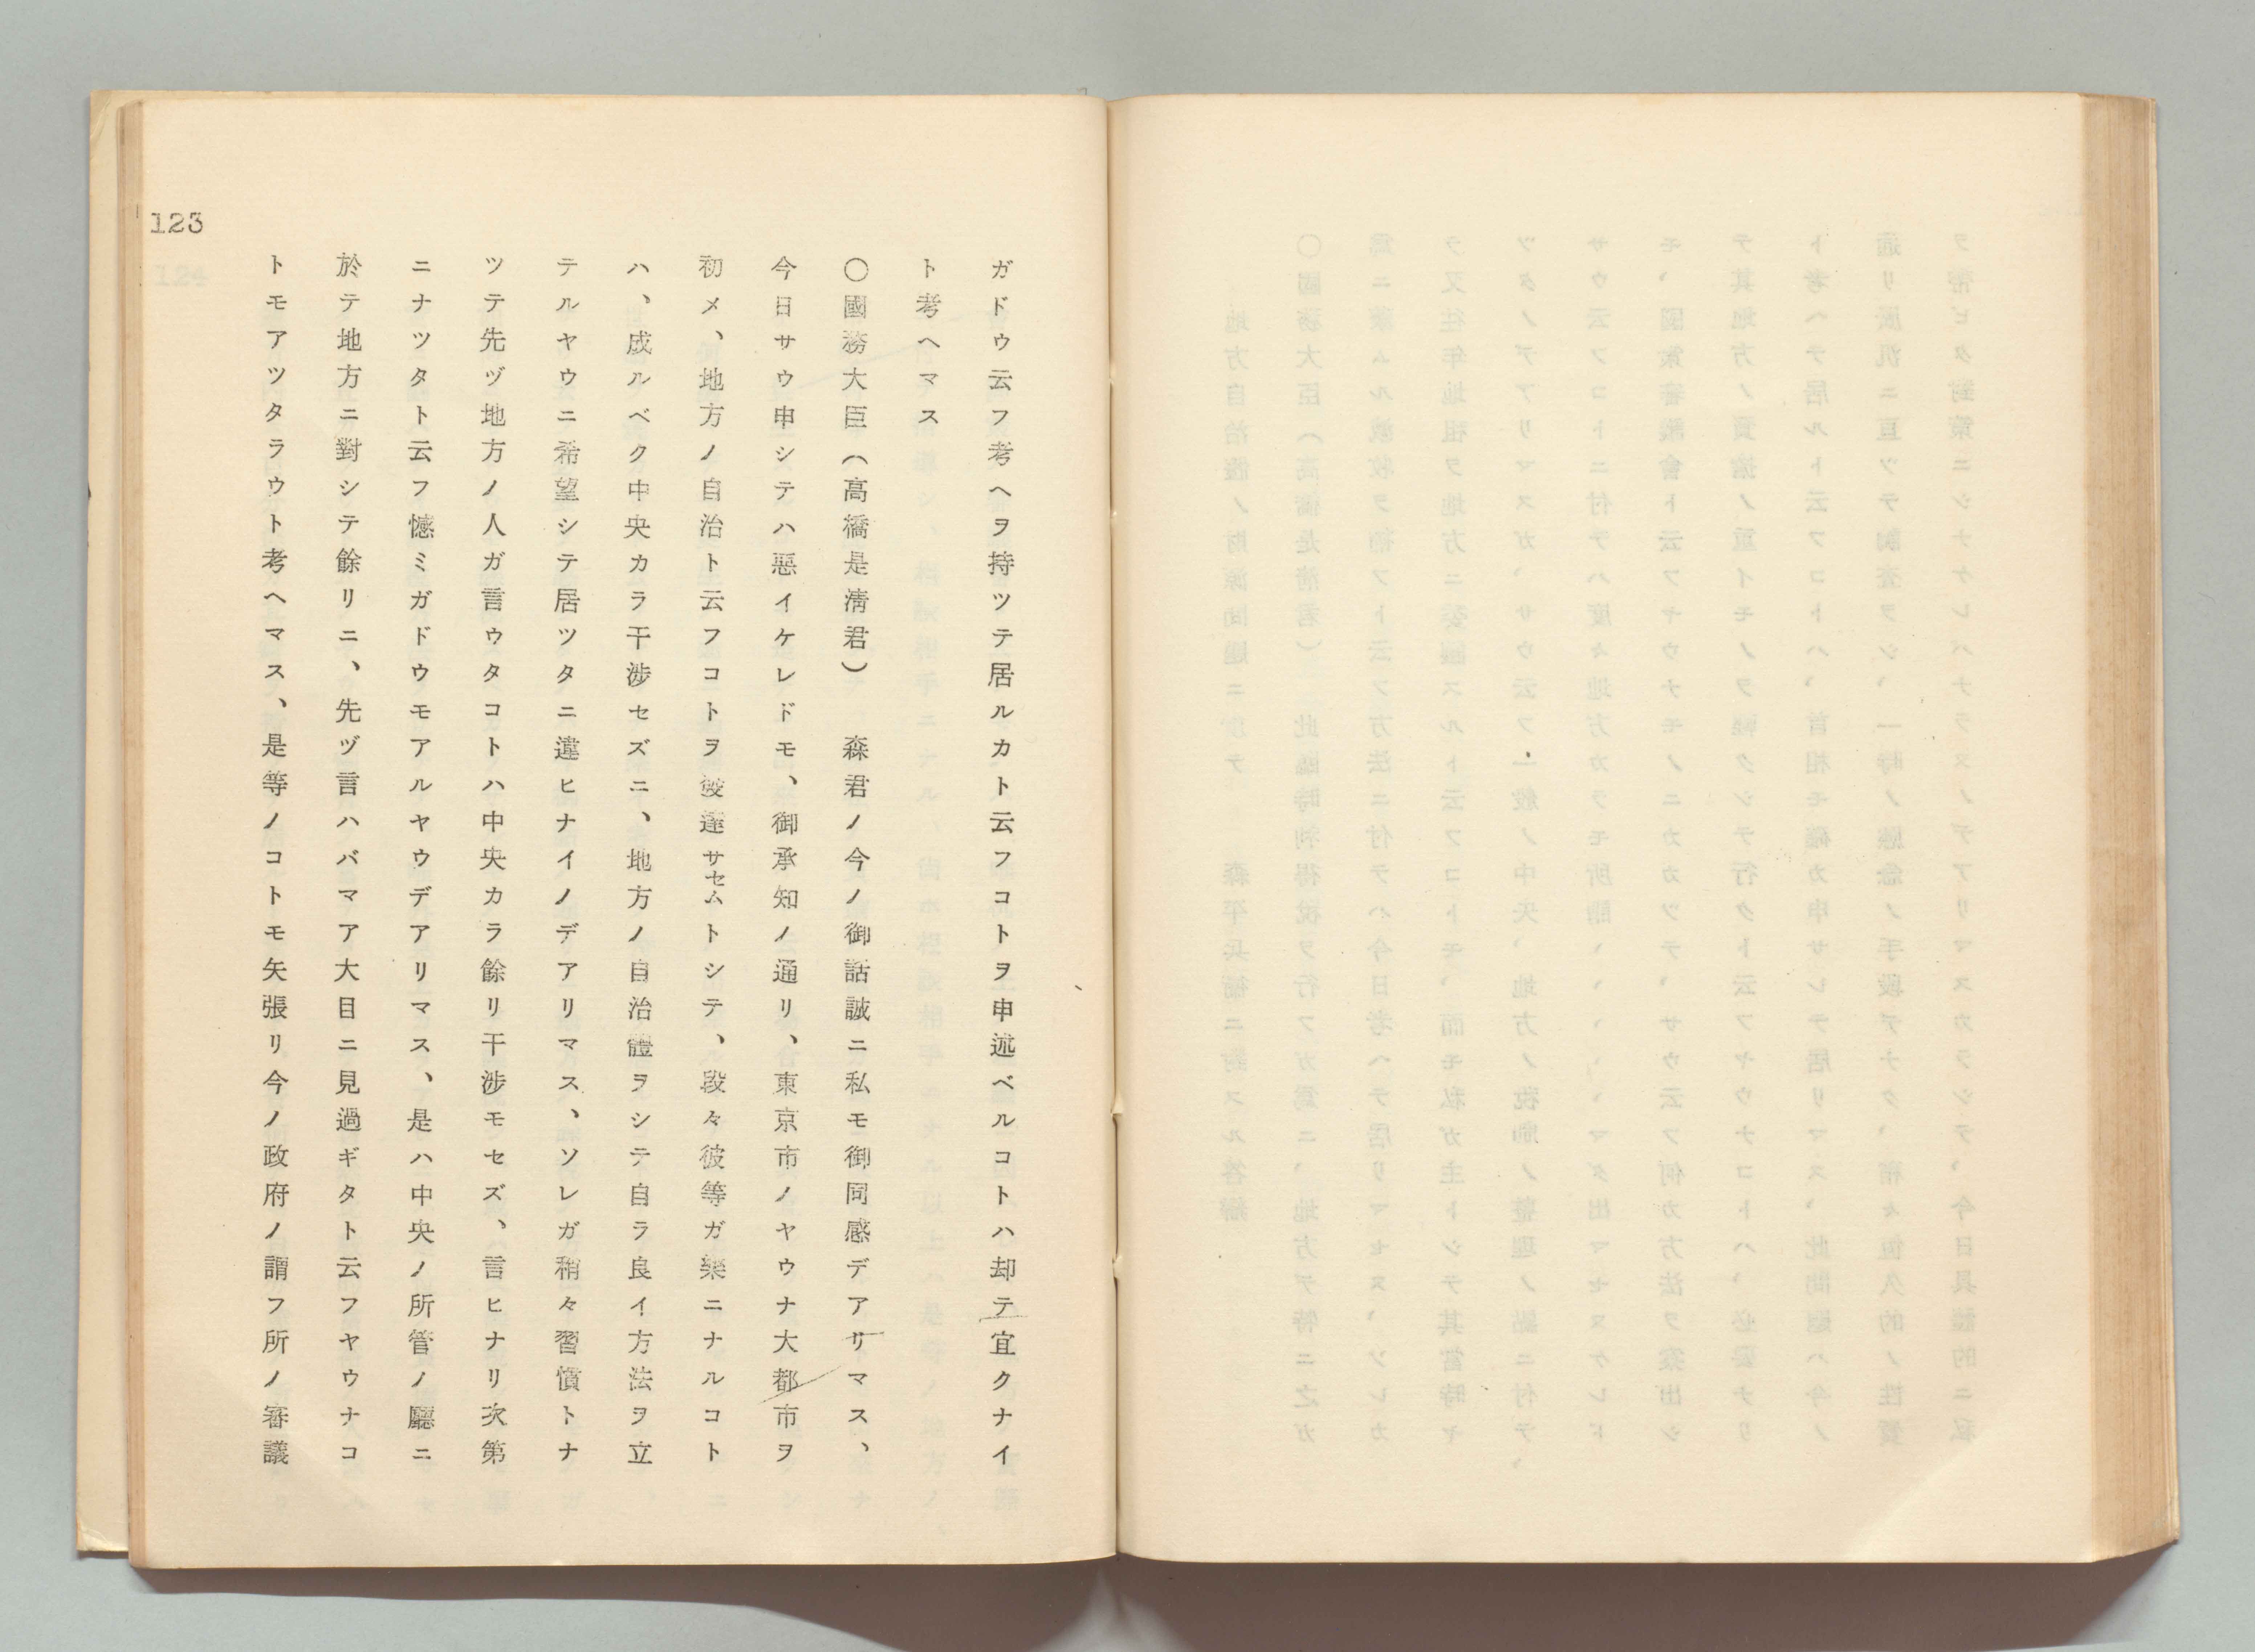 ガドウ云フ考ヘヲ持ツテ居ルカト云フコトヲ申述ベルコトハ却テ宜クナイ
ト考ヘマス
〇國務大臣(高橋是淸君) 森君ノ今ノ御話誠ニ私モ御同感デアリマス、
今日サウ申シテハ惡イケレドモ、御承知ノ通リ、東京市ノヤウナ大都市ヲ
初メ、地方ノ自治ト云フコトヲ發達サセムトシテ、段々彼等ガ樂ニナルコト
ハ、成ルベク中央カラ干涉セズニ、地方ノ自治體ヲシテ自ラ良イ方法ヲ立
テルヤウニ希望シテ居ツタニ違ヒナイノデアリマス、ソレガ稍々習慣トナ
ツテ先ヅ地方ノ人ガ言ウタコトハ中央カラ餘リ干涉モセズ、言ヒナリ次第
ニナツタト云フ憾ミガドウモアルヤウデアリマス、是ハ中央ノ所管ノ廳ニ
於テ地方ニ對シテ餘リニ、先ヅ言ハバマア大目ニ見過ギタト云フヤウナコ
トモアツタラウト考ヘマス、是等ノコトモ矢張リ今ノ政府ノ謂フ所ノ審議
123